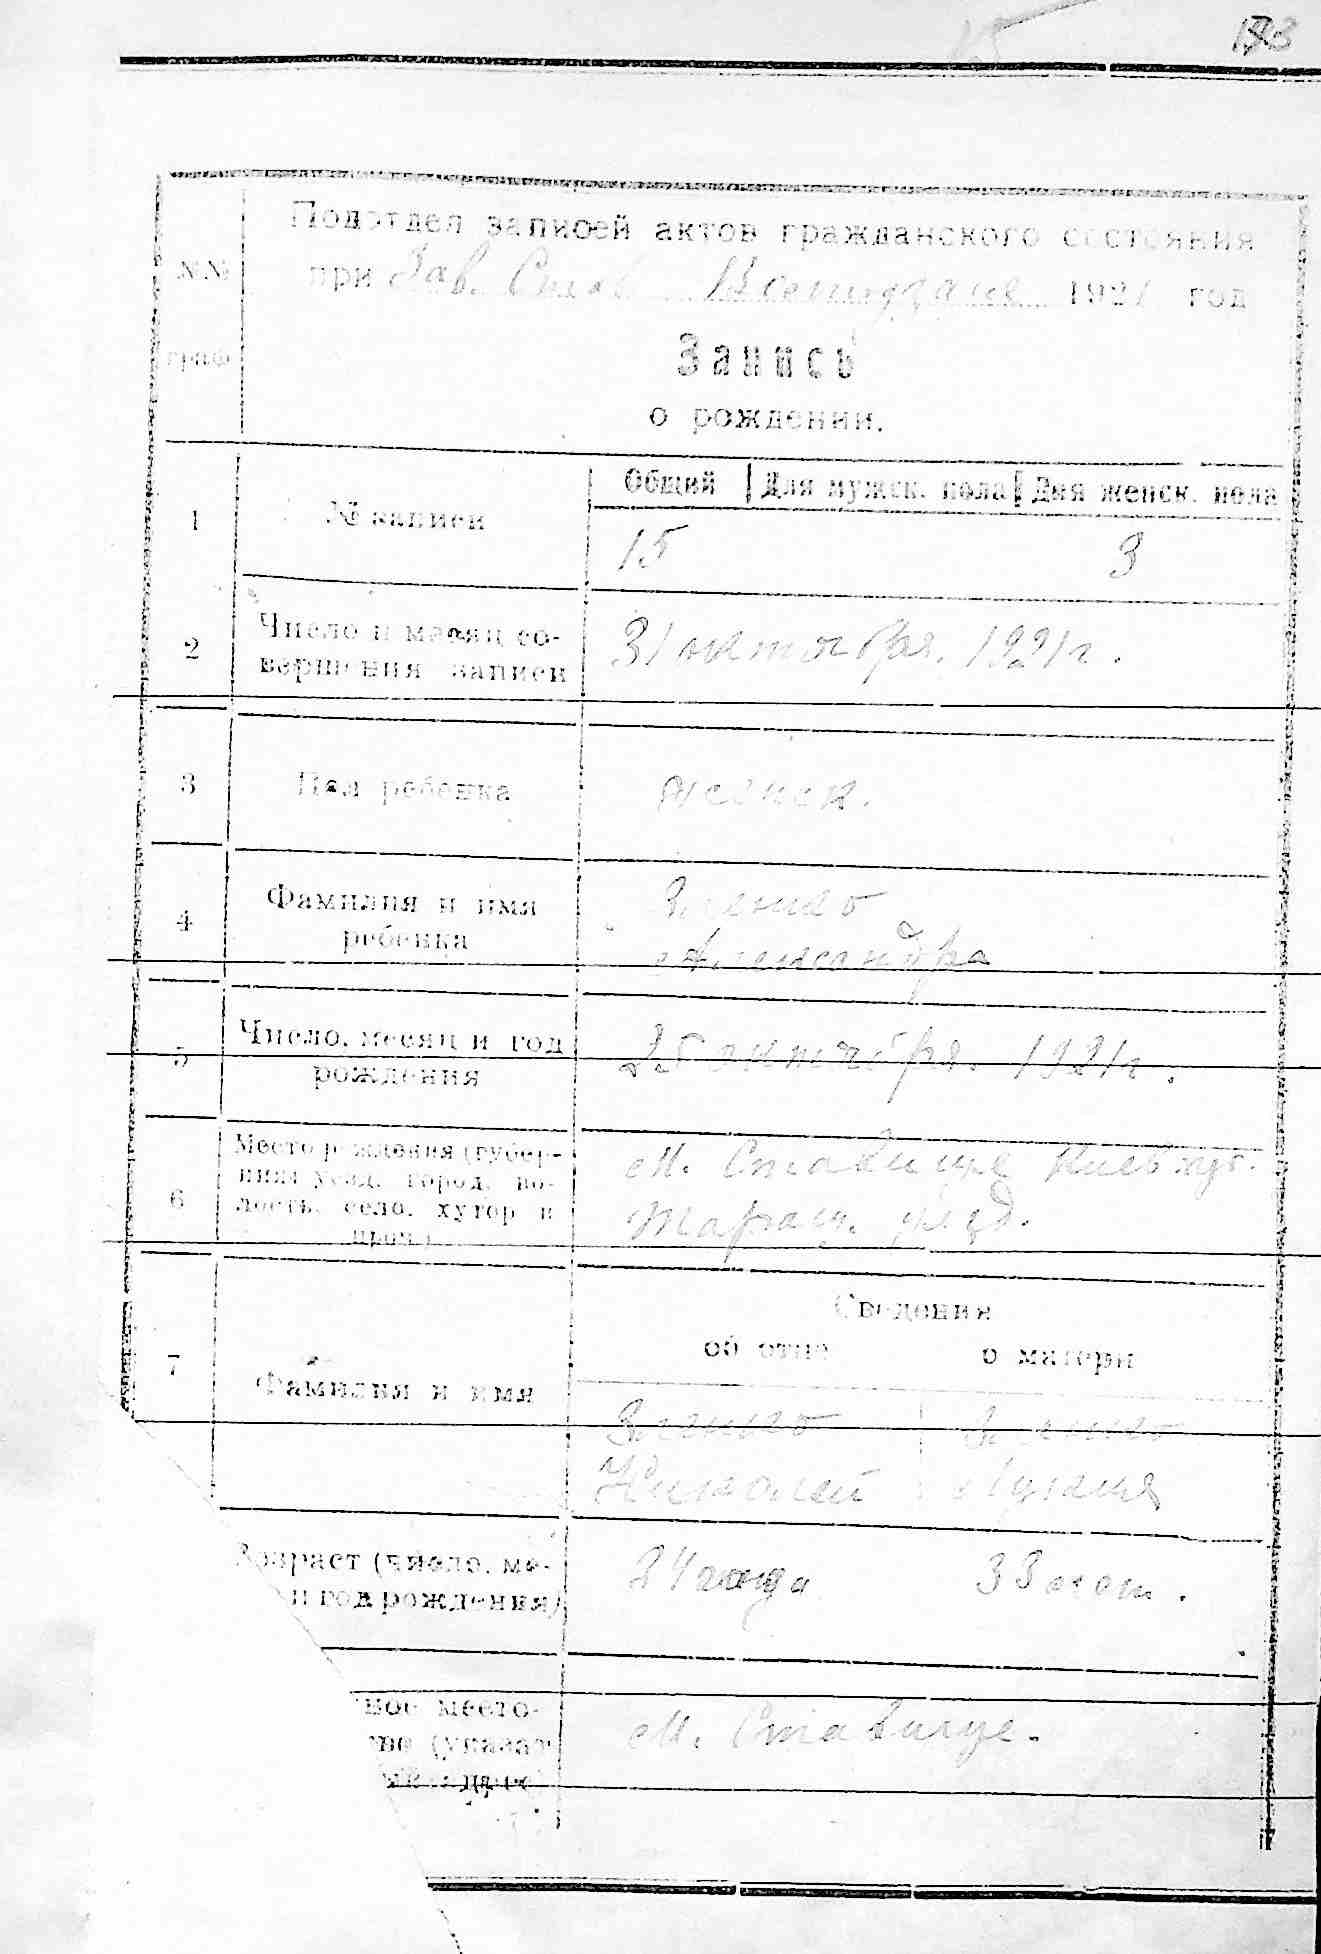 15
Подотдел записей актов гражданского состояния
при Зав. 1921 год
№№
граф
Запись
о рождении.
Общий Для мужск. пола Для женск. пола
1 № записи
15 3
2 Число и месяц со-
вершения записи
31 октября. 1921 г.
3 Пол ребенка женск.
4 Фамилия и имя
ребенка
Александра
5 Число, месяц и год
рождения
25 октября. 1921 г.
6 Место рождения (губер-
ния уезд. город. во-
лость. село. хутор и
проч.)
М. Ставище Киев. губ.
Таращ. уезд.
Сведения
об отце о матери
7 Фамилия и имя
Николай Лукия
Возраст (число, ме-
и год рождения)
24 года 38 лет.
ное место-
во (указат
М. Ставище.